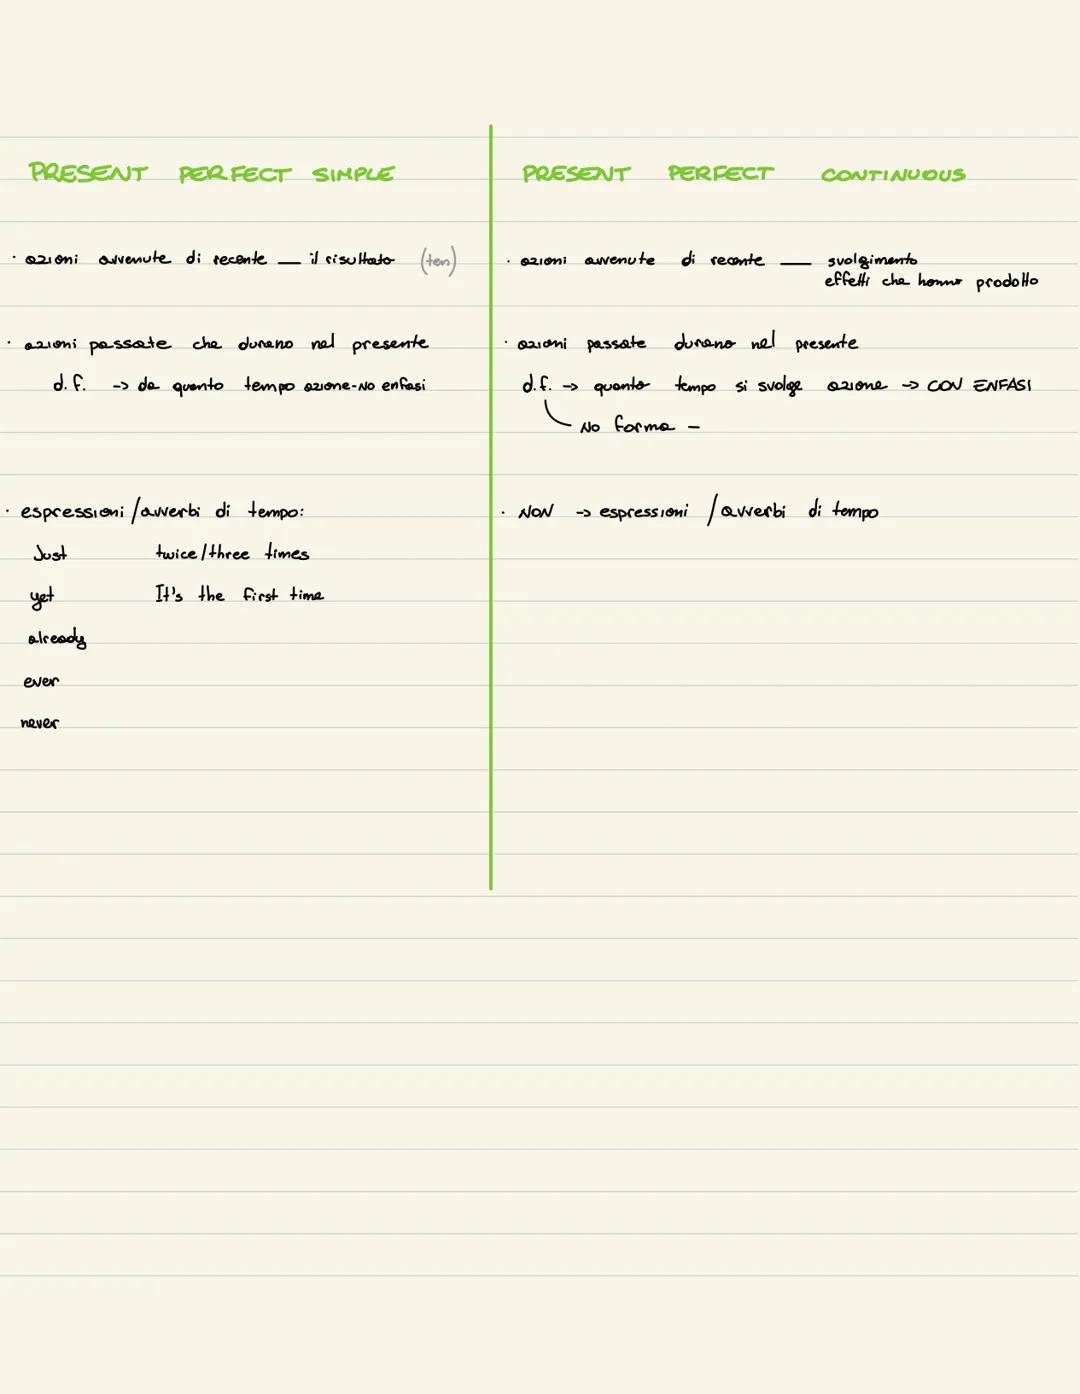 PRESENT PERFECT SIMPLE
· azioni avvenute di recente — il risultato (ten)
· azioni passate che durano nel presente
d.f. -> da quanto tempo azione-No enfasi
· espressioni/avverbi di tempo:
Just twice/three times
yet It's the first time
already
ever
never
PRESENT PERFECT CONTINUOUS
· azioni avvenute di recente — svolgimento
effetti che hanno prodotto
· azioni passate durano nel presente
d.f. -> quanto tempo si svolge azione -> CON ENFASI
No forma -
· NON -> espressioni/avverbi di tempo